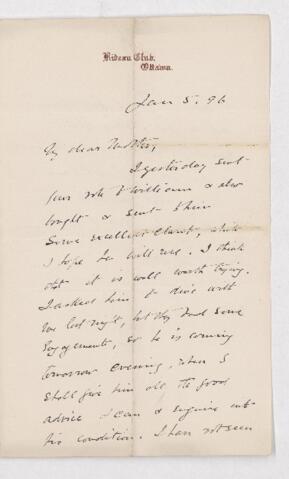 Rideau Club,
Ottawa.
Jan 5. 96
My dear Mother,
I yesterday sent
your note to William & also
bought & sent him
Some excellent Claret, which
I hope he will use. I think
that it is well worth trying.
I asked him to dine with
me last night, but they had some
engagements, so he is coming
tomorrow evening, when I
shall give him all the good
advice I can & enquire into
his condition. I have not seen